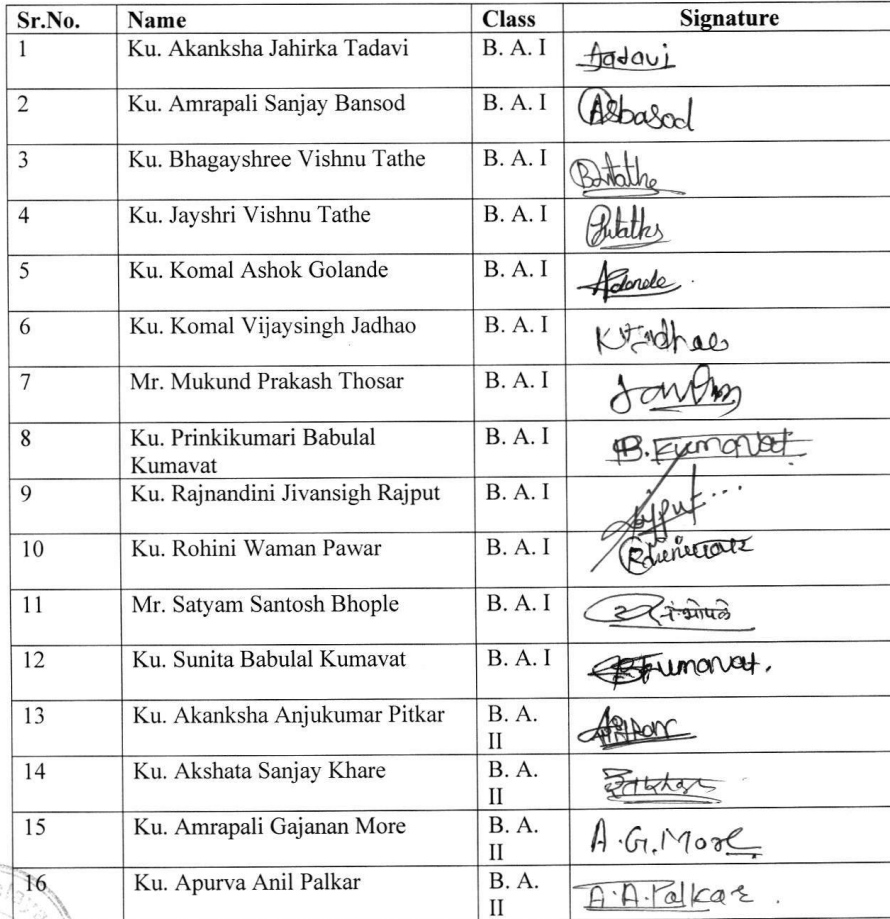 Sr.No. Name Class Signature
1 Ku. Akanksha Jahirka Tadavi B. A. I Tadavi
2 Ku. Amrapali Sanjay Bansod B. A. I ASbasod
3 Ku. Bhagayshree Vishnu Tathe B. A. I
4 Ku. Jayshri Vishnu Tathe B. A. I
5 Ku. Komal Ashok Golande B. A. I
6 Ku. Komal Vijaysingh Jadhao B. A. I
7 Mr. Mukund Prakash Thosar B. A. I
8 Ku. Prinkikumari Babulal B. A. I B. Kumavat
Kumavat
9 Ku. Rajnandini Jivansigh Rajput B. A. I
10 Ku. Rohini Waman Pawar B. A. I
11 Mr. Satyam Santosh Bhople B. A. I
12 Ku. Sunita Babulal Kumavat B. A. I
13 Ku. Akanksha Anjukumar Pitkar B. A.
II
14 Ku. Akshata Sanjay Khare B. A.
II
15 Ku. Amrapali Gajanan More B. A. A.G.More
II
16 Ku. Apurva Anil Palkar B. A. A.A.Palkar.
II